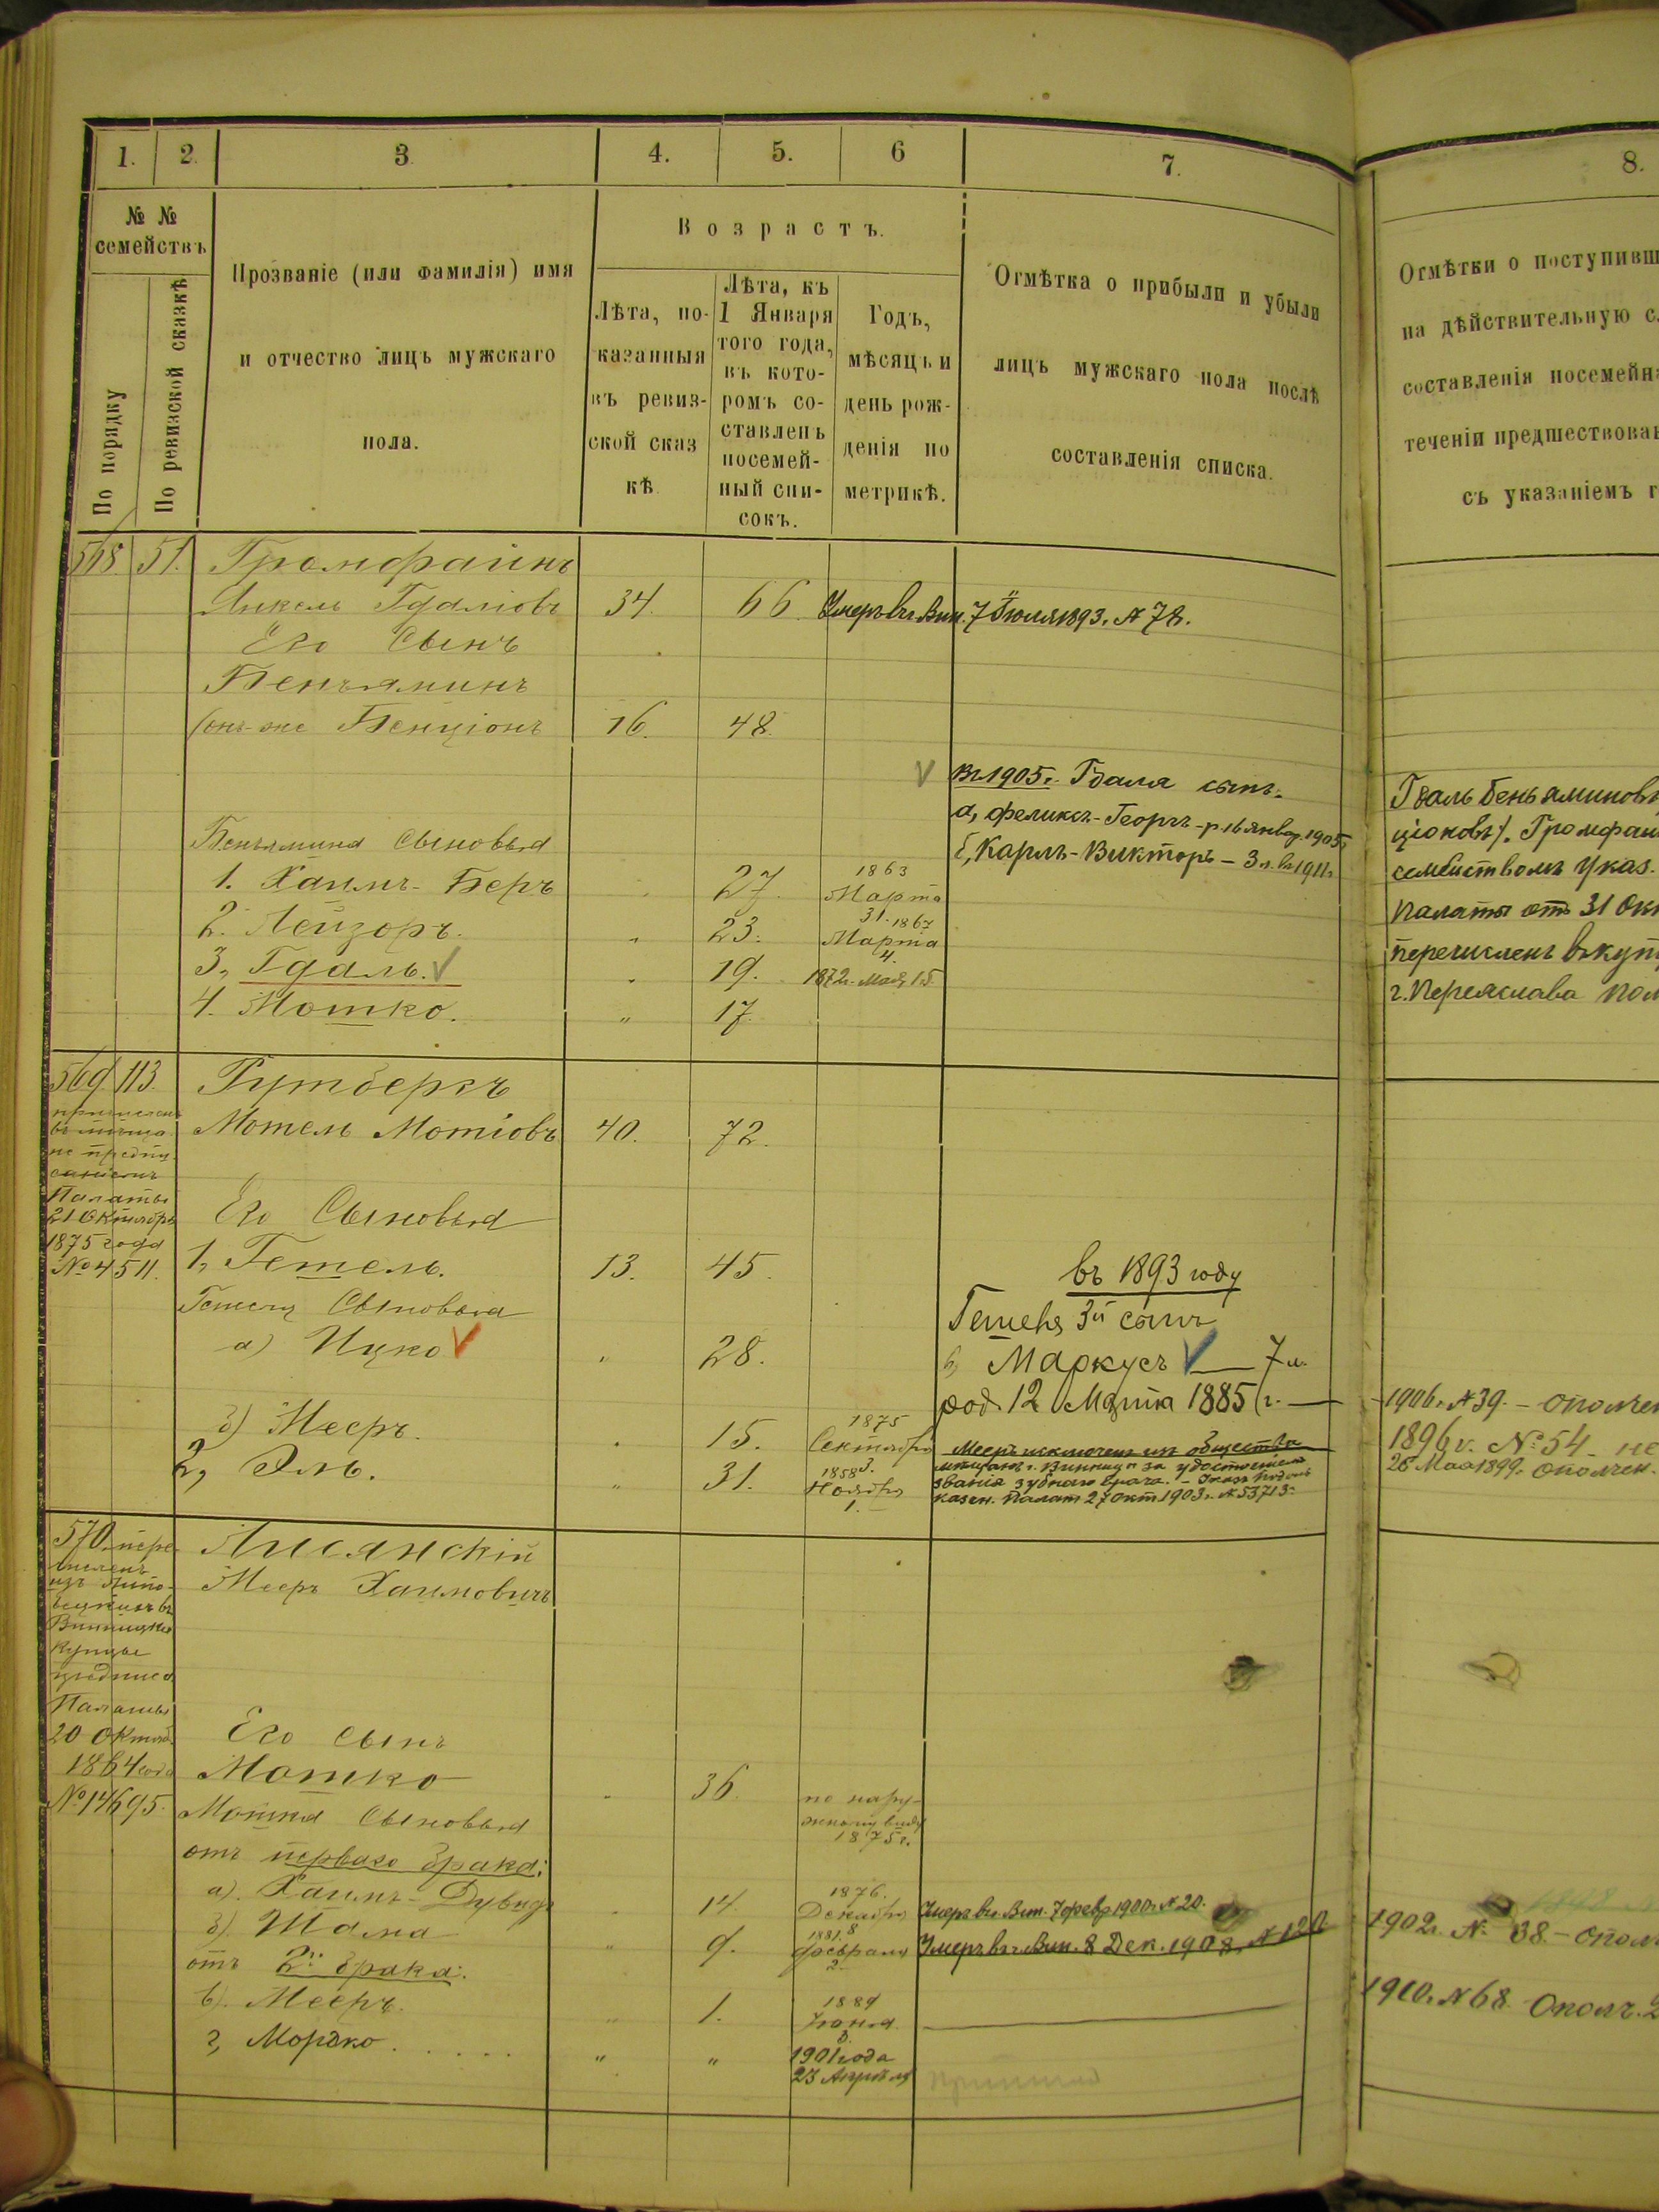 1. 2. 3 4. 5. 6 7. 8.
№ №
семействъ
По порядку
По ревизской сказкѣ
Прозваніе (или фамилія) имя
и отчество лицъ мужскаго
пола.
Возрастъ.
Лѣта, по-
казанныя
въ ревиз-
ской сказ
кѣ.
Лѣта, къ
1 Января
того года,
въ кото-
ромъ со-
ставленъ
посемей-
ный спи-
сокъ.
Годъ,
мѣсяцъ и
день рож-
денія по
метрикѣ.
Отмѣтка о прибыли и убыли
лицъ мужскаго пола послѣ
составленія списка.
Отмѣтки о поступивш
на дѣйствительную с
составленія посемейн
теченіи предшествова
съ указаніемъ г
568. 51. Громфайнъ
Янкель Гдаліовъ 34. 66 Умеръ въ Вин. 7 Іюля 1893. № 78.
Его Сынъ
Беньяминъ
(онъ-же Бенціонъ 16. 48.
Въ 1905 г. Гдаля сынъ.
а, Феликсъ-Георгъ-р. 16 янвор. 1905 г.
б, Карлъ-Викторъ – 3 л. въ 1911 г.
Беньямина Сыновья
1. Хаимъ-Беръ " 27. 1863 Марта 31.
2. Лейзоръ. " 23. 1867 Марта 4.
3, Гдаль. " 19. 1872 г. Мая 15.
4. Мошко. " 17.
Гдаль Беньяминов
ціоновъ). Громфай
семействомъ указ.
Палаты отъ 31 Ок
перечисленъ въ куп
г. Переяслава Пол
569. 113. Рутбергъ
Мотель Мотіовъ 40. 72.
Палаты
21 Октября
1875 года
№ 4511.
Его Сыновья
1, Гетель. 13. 45.
Гетеля Сыновья
а) Ицко " 28.
б) Мееръ. " 15. 1875 Сентября 3.
2, Эль. " 31. 1858 Ноября 1.
въ 1893 году
Гетеля 3й сынъ
в, Маркусъ — 7 л.
род. 12 Марта 1885 г. —
Мееръ исключенъ изъ общества
мѣщанъ г. Винницы за удостоеніемъ
званія зубнаго врача. – Указъ Подол.
казен. Палат. 27 окт. 1903 г. № 53713.
1906 г. № 39. – ополчен
1896 г. № 54 не
26 Мая 1899 г. ополчен.
570. пере-
численъ
изъ Липо-
вецкихъ въ
Винницкіе
Купцы
предпис.
Палаты
20 Октяб.
1864 года
№ 14695.
Лисянскій
Мееръ Хаимовичъ
Его сынъ
Мошко " 36. по нару-
жному виду
1875 г.
Мошка Сыновья
отъ перваго брака:
а). Хаимъ-Дувидъ " 14. 1876. Декабря 8 Умеръ въ г. Вин. 7 февр 1900 г. № 20.
б). Шама " 9. 1881. Февраля 2. Умеръ въ г. Вин. 8 Дек. 1908. № 120
отъ 2го брака:
в). Мееръ. " 1. 1889 Іюня 3.
г, Мордко..... " " 1901 года
23 Апрѣля
1902 г. № 38. – ополч
1910 г. № 68. Ополч. 2